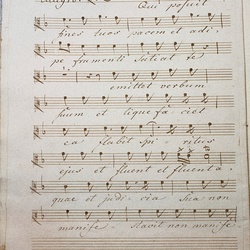 Qui posuit
fines tuos pacem et adi
pe frumenti satiat te
emittet verbum
suum et lique fa ciet
ea flabit Spi ritus
ejus et fluent et fluent a
quae et judi cia Sua non
manife stavit non manife